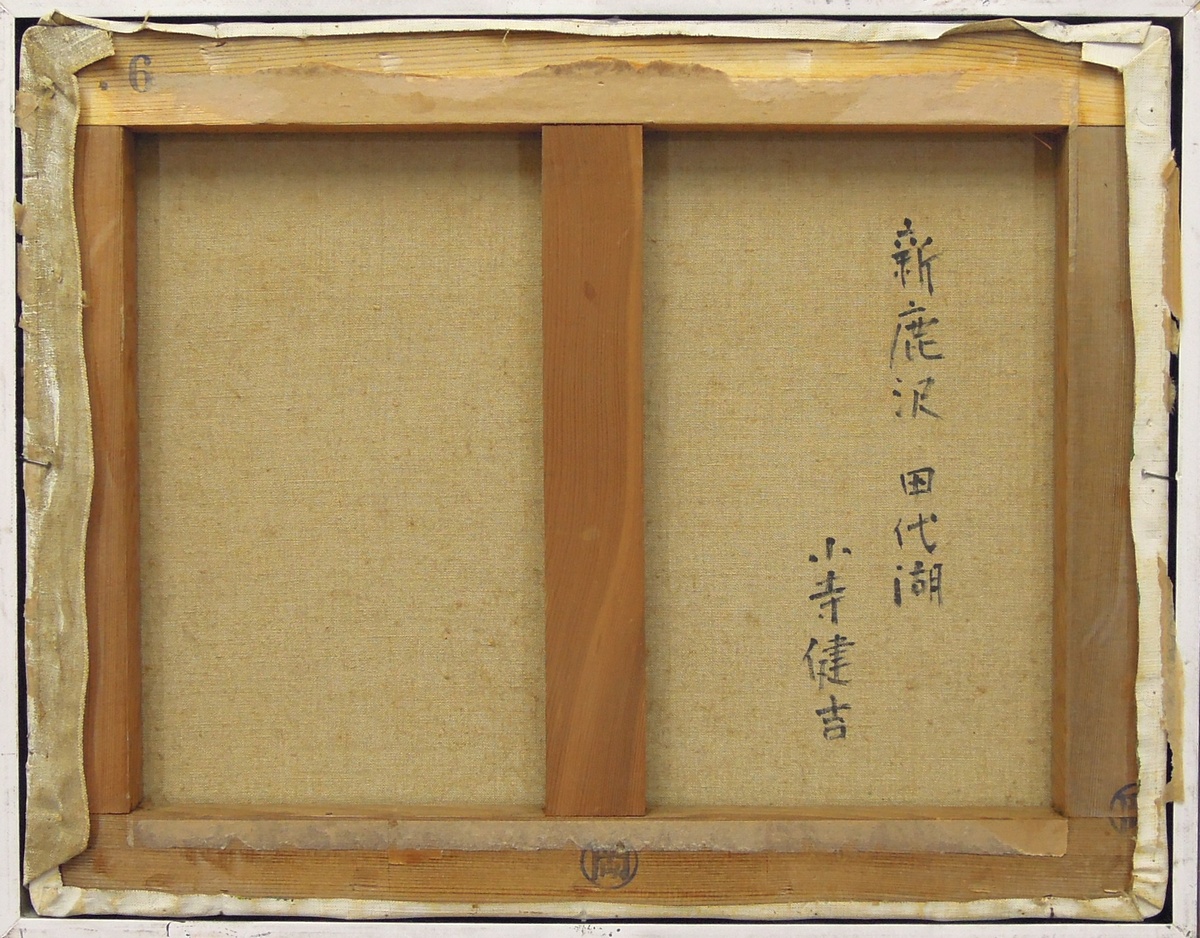 新鹿沢 田代湖
小寺健吉
.6